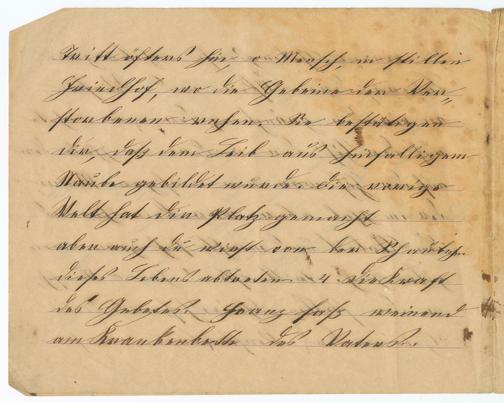 Tritt öfters hin, o Mensch, im stillen
Friedhof, wo die Gebeine der Ver„
storbenen ruhen. Sie bestätigen
dir, daß dein Leib aus hinfälligem
Staube gebildet wurde die vorige
Welt hat dir Platz gemacht
aber auch du wirst von der Schaubh.
dieses Lebens abtreten. 4. die Kraft
des Gebetes. Franz saß weinend
am Krankenbette des Vaters.